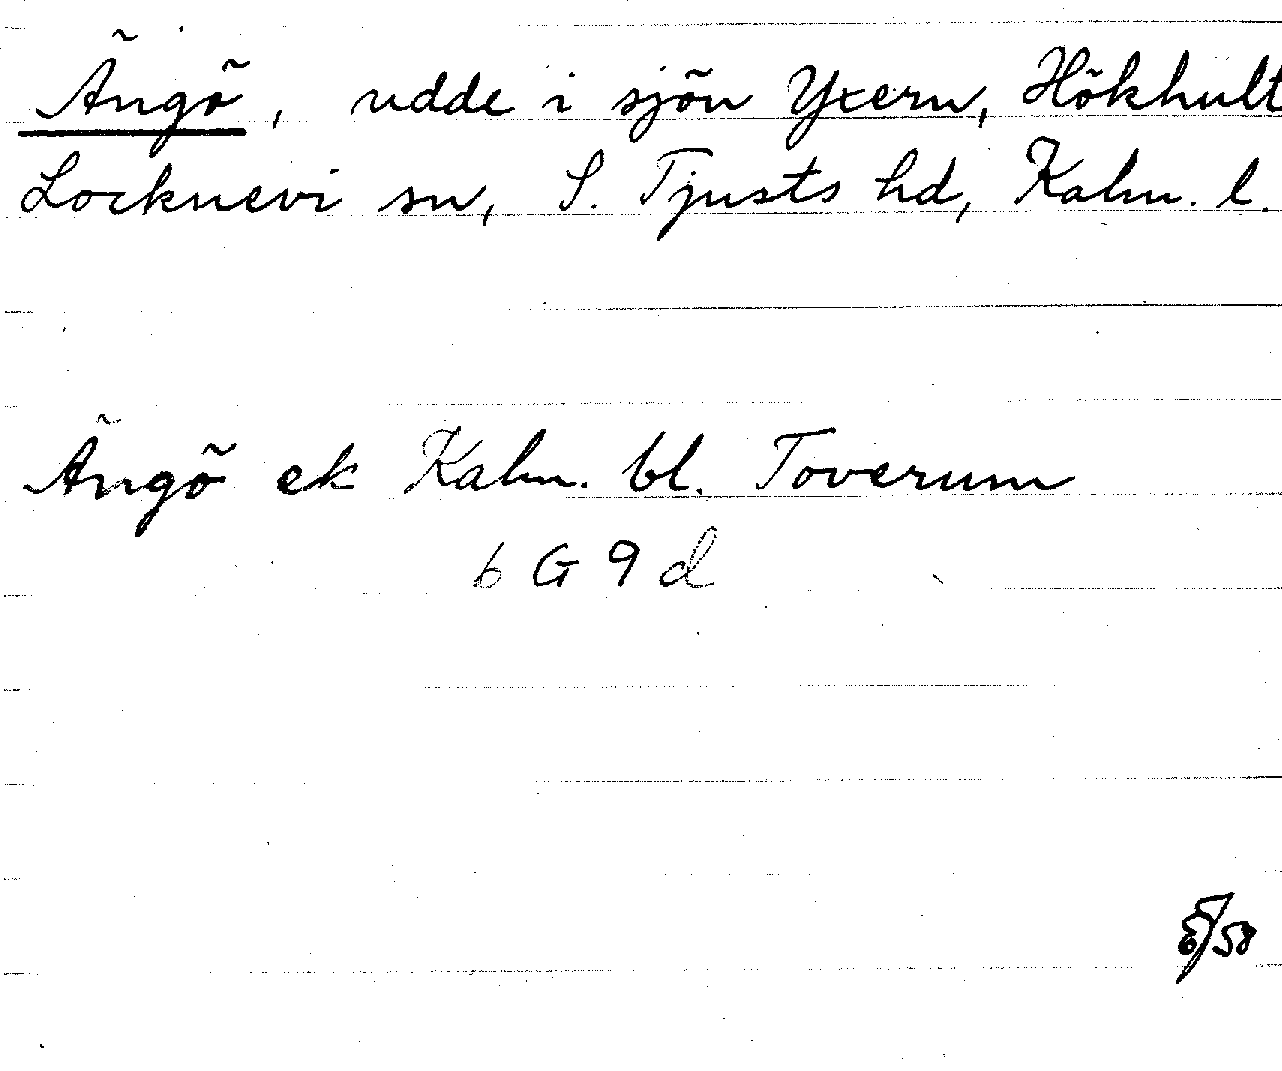 Ängö, udde i sjön Yxern, Hökhult
Locknevi sn, S. Tjusts hd, Kalm. l.
Ängö ek Kalm. bl. Toverum
6 G 9 d